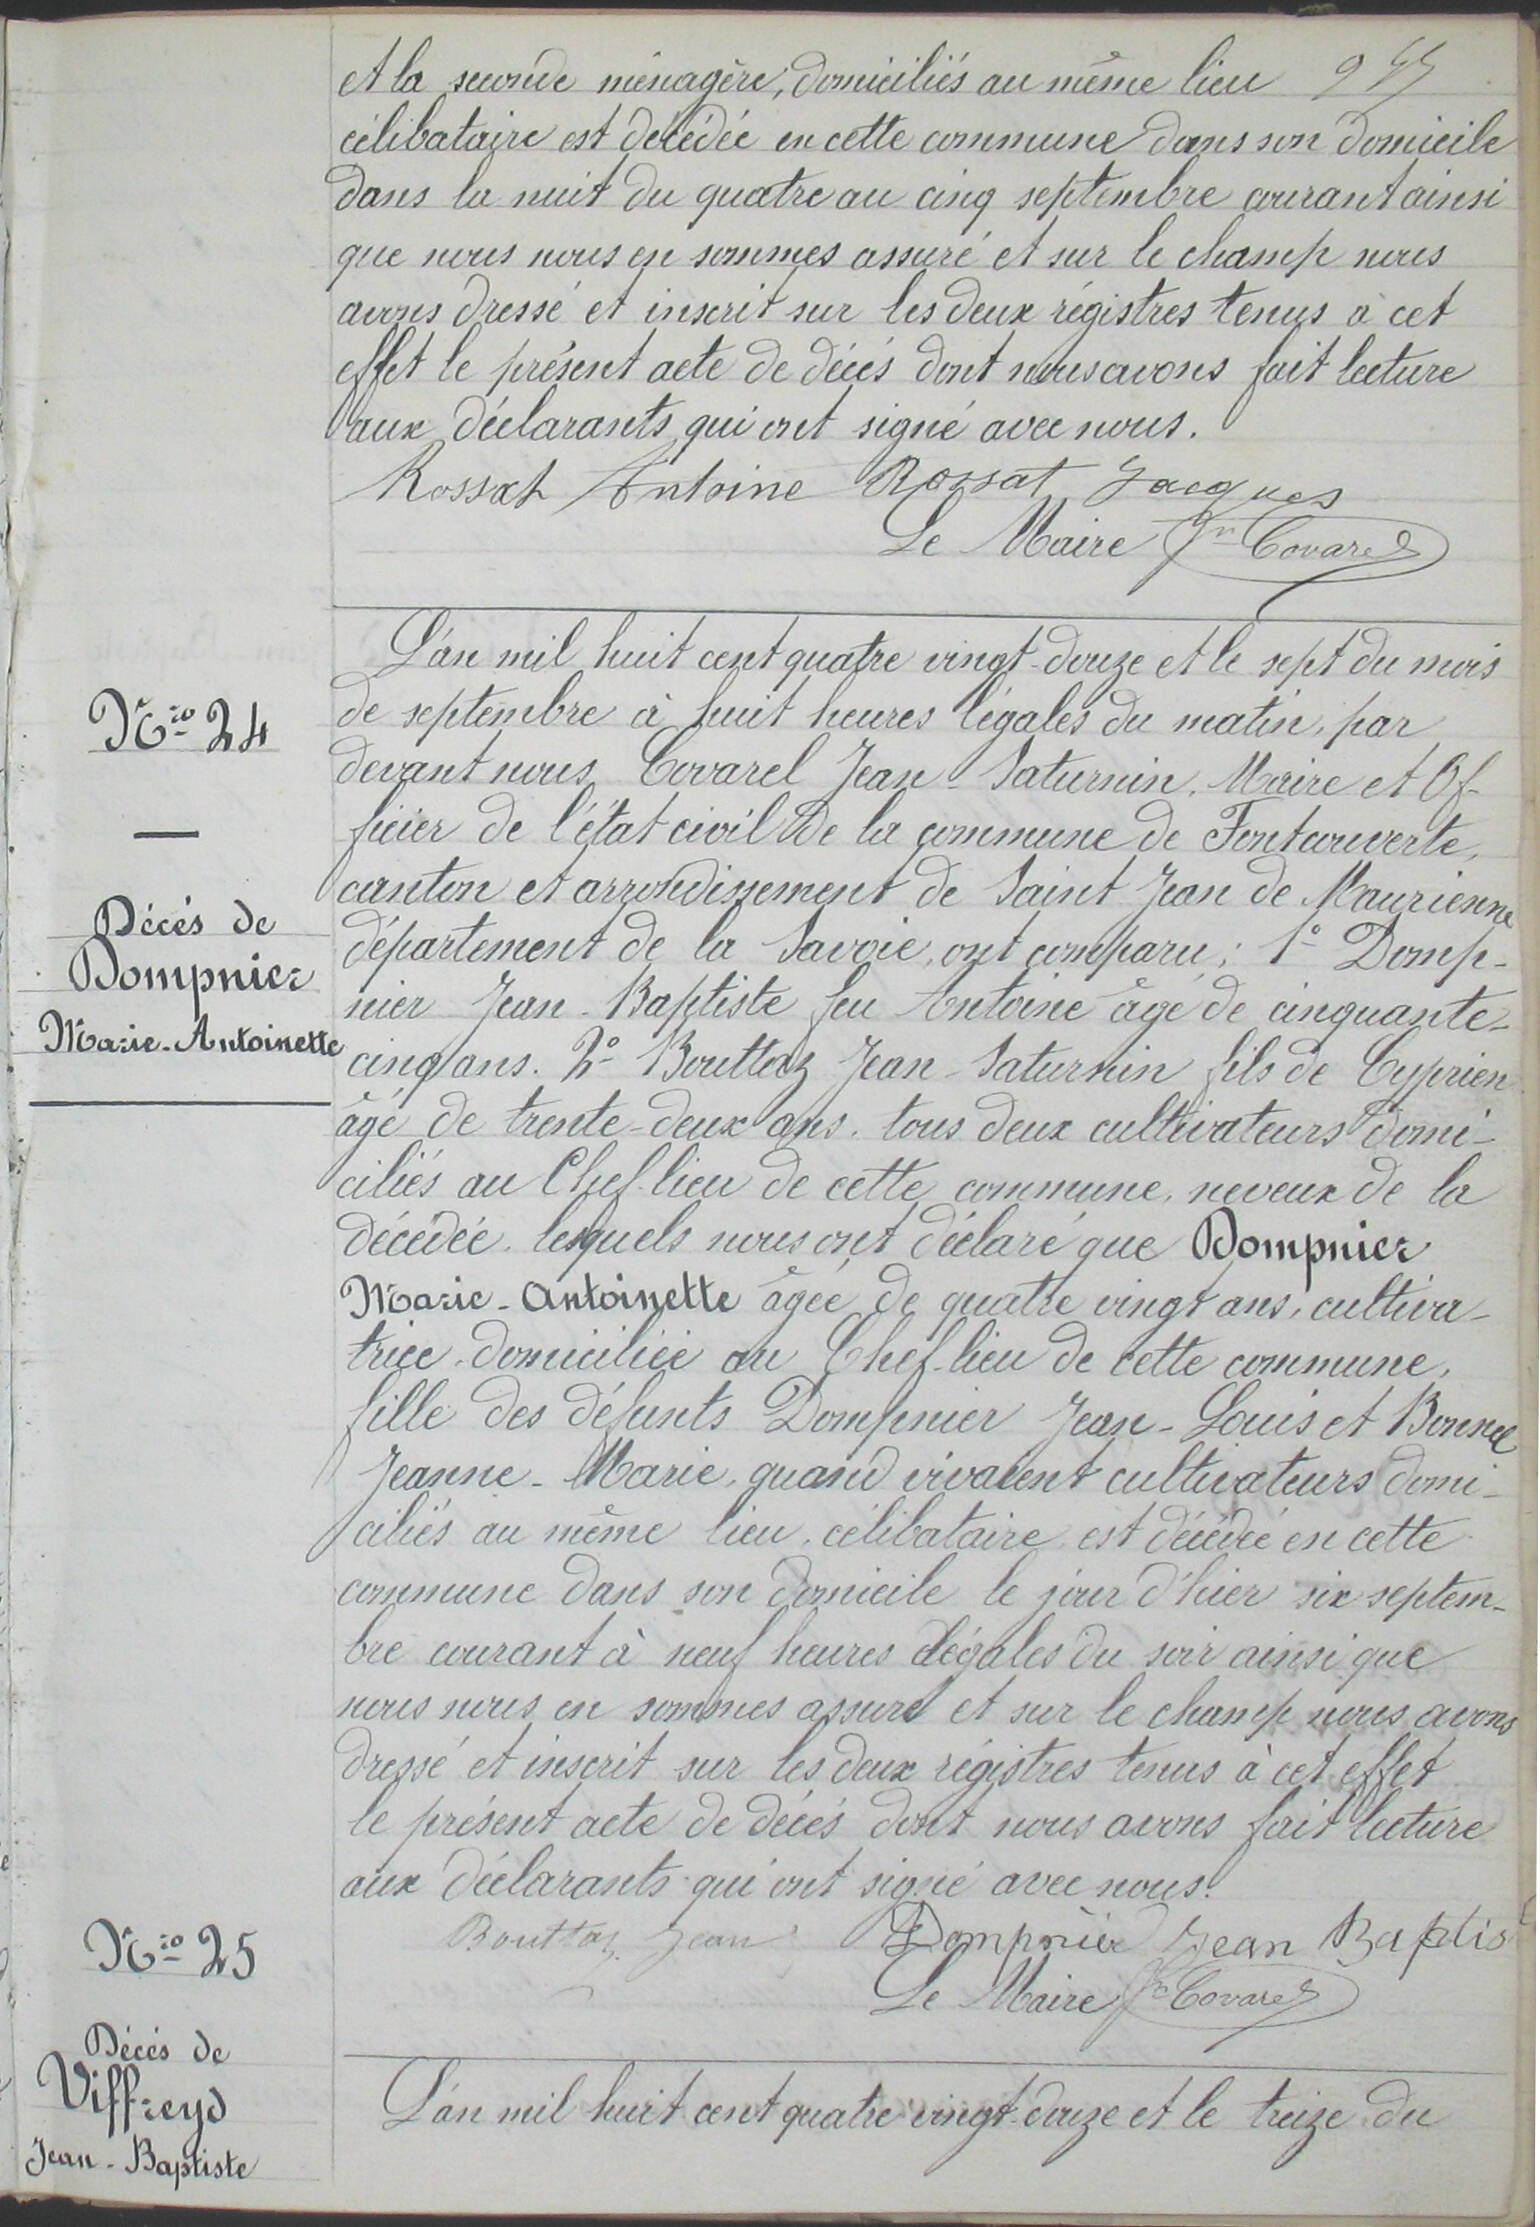 et la seconde ménagère, domiciliés au même lieu
célibataire est décédée en cette commune dans son domicile
dans la nuit du quatre au cinq septembre courant ainsi
que nous nous en sommes assuré et sur le champ nous
avons dressé et inscrit sur les deux régistres tenus à cet
effet le présent acte de décés dont nous avons fait lecture
aux déclarants qui ont signé avec nous.
Rossat Antoine Rossat Jacques
Le Maire Jn Covarel
L'an mil huit cent quatre vingt-douze et le sept du mois
de septembre à huit heures légales du matin, par
devant nous Covarel Jean-Saturnin, Maire et Of-
ficier de l'état civil de la commune de Fontcouverte,
canton et arrondissement de Saint Jean de Maurienne
département de la Savoie, ont comparu: 1° Domp-
nier Jean-Baptiste feu Antoine âgé de cinquante-
cinq ans. 2° Bouttaz Jean-Saturnin fils de Cyprien
âgé de trente-deux ans. tous deux cultivateurs domi-
ciliés au Chef-lieu de cette commune, neveux de la
décédée. lesquels nous ont déclaré que Dompnier
Marie-Antoinette âgée de quatre vingt ans, cultiva-
trice, domiciliée au Chef-lieu de cette commune,
fille des défunts Dompnier Jean-Louis et Bonnel
Jeanne-Marie, quand vivaient cultivateurs domi-
ciliés au même lieu, célibataire, est décédée en cette
commune dans son domicile le jour d'hier six septem-
bre courant à neuf heures légales du soir ainsi que
nous nous en sommes assuré et sur le champ nous avons
dressé et inscrit sur les deux régistres tenus à cet effet
le présent acte de décés dont nous avons fait lecture
aux déclarants qui ont signé avec nous.
Bouttaz Jean Dompnier Jean Baptis
Le Maire Jn Covarel
L'an mil huit cent quatre vingt-douze et le treize du
Nro 24
Décés de
Dompnier
Marie-Antoinette
Nro 25
Décés de
Viffreyd
Jean-Baptiste